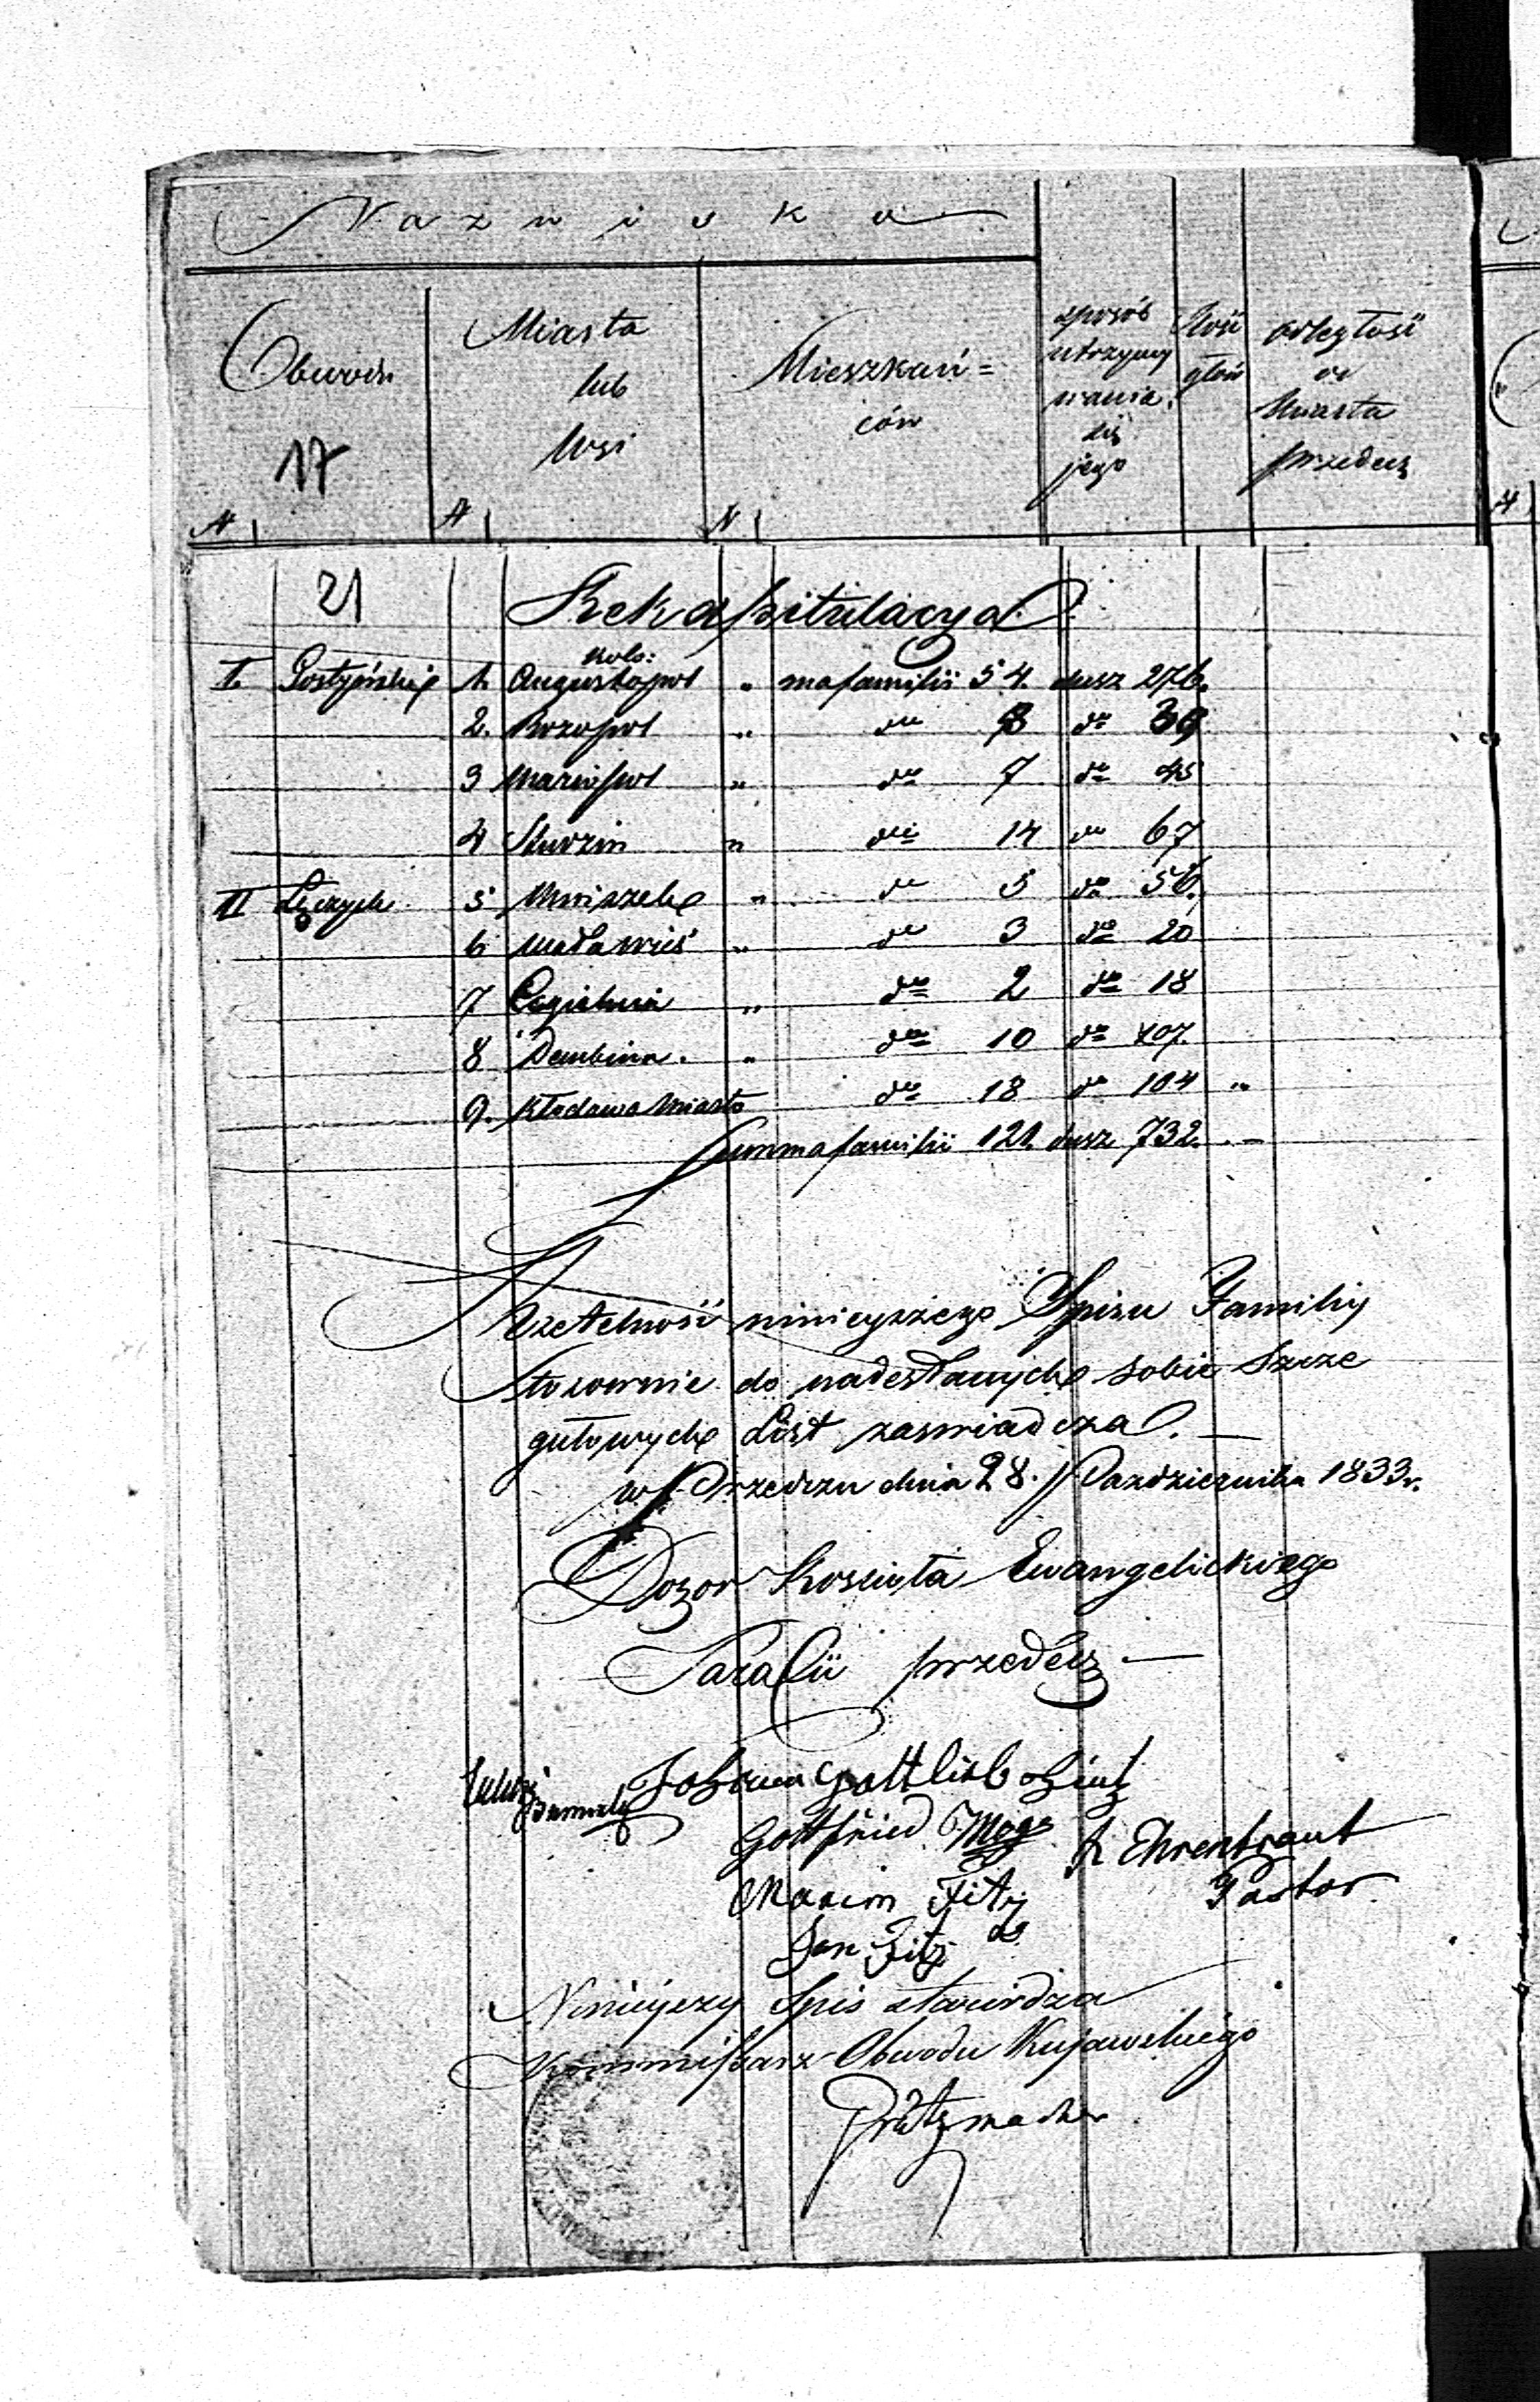 Nazwiska
Obwodu
Miasta
lub
Wsi
Mieszkań=
ców
sposób
utrzymy
wania
się
jego
Ilość
głów
odległość
od
Miasta
przedecz
17
N N N
21 Rekapitulacya
Kolo:
I Gostyński 1. Augustopol „ ma familii 54. dusz 276.
2. Rozopol „ do 8 do 39
3 Mariopol „ do 7 do 45
4 „ do 14 do 67
II Łęczyck 5 „ do 5 do 56.
6 Mała wieś „ do 3 do 20
7 Cegielnia „ do 2 do 18
8 Dembina. „ do 10 do 107.
9. Kłodawa Miasto do 18 do 104 „
Summa familii 121. dusz 732. —
Rzetelność ninieyszego Spisu Familiy
Stosownie do nadesłanych sobie Szcze
gułowych List zaswiadcza. —
w Przedczu dnia 28. Pazdziernika 1833r.
Dozor Koscioła Ewangelickiego
Parafii przedecz —
Johann Gottlieb
Gottfried
R Ehrentraut
Pastor
Marcin Fitz
Jan Fitz
Ninieyszy Spis stwierdza
Kommissarz Obwodu Kujawskiego
Grützmacher